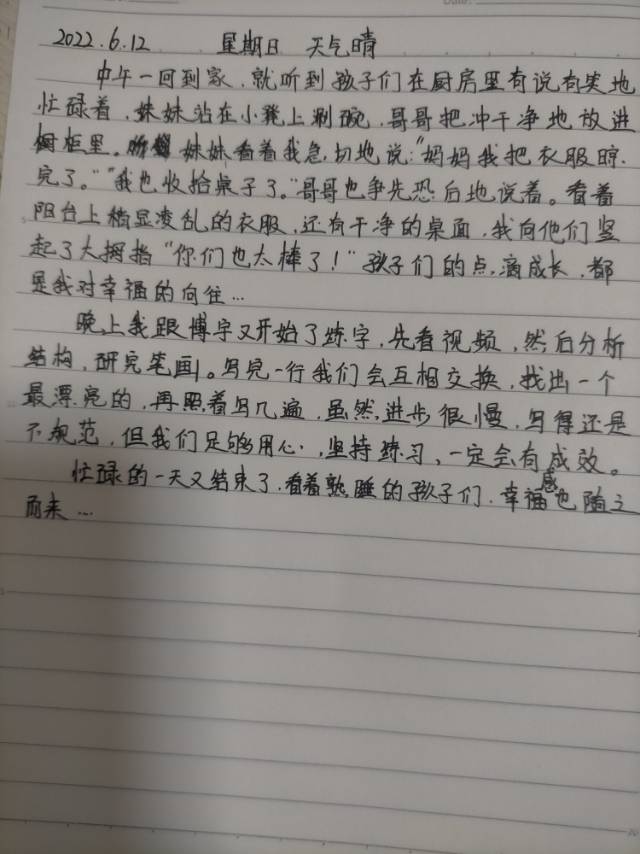 2022.6.12 星期日 天气晴
中午一回到家，就听到孩子们在厨房里有说有笑地
忙碌着，妹妹站在小凳上刷碗，哥哥把冲干净地放进
橱柜里。妹妹看着我急切地说："妈妈我把衣服晾
完了。""我也收拾桌子了。"哥哥也争先恐后地说着。看着
阳台上稍显凌乱的衣服，还有干净的桌面，我向他们竖
起了大拇指"你们也太棒了！"孩子们的点滴成长，都
是我对幸福的向往…
晚上我跟博宇又开始了练字，先看视频，然后分析
结构，研究笔画。写完一行我们会互相交换，找出一个
最漂亮的，再照着写几遍，虽然进步很慢，写得还是
不规范，但我们足够用心，坚持练习，一定会有成效。
忙碌的一天又结束了，看着熟睡的孩子们，幸福感也随之
而来…